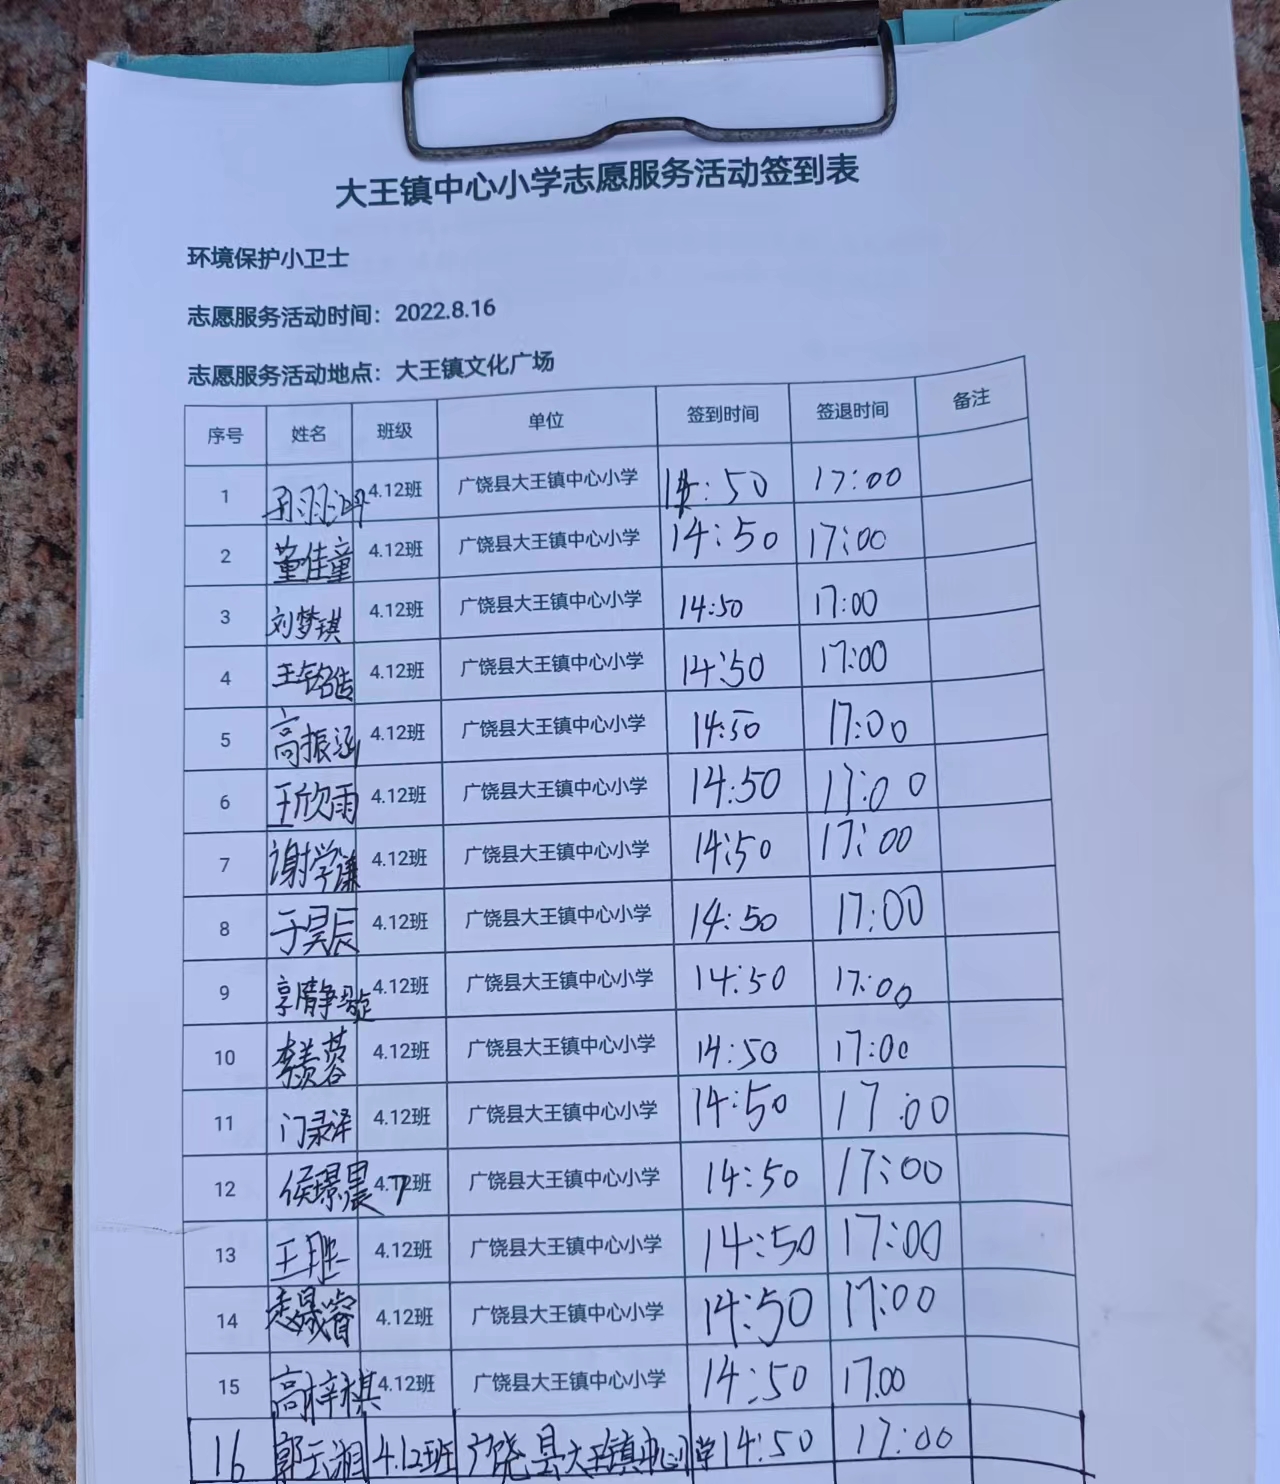 大王镇中心小学志愿服务活动签到表
环境保护小卫士
志愿服务活动时间：2022.8.16
志愿服务活动地点：大王镇文化广场
序号 姓名 班级 单位 签到时间 签退时间 备注
1 4.12班 广饶县大王镇中心小学 14:50 17:00
2 董佳童 4.12班 广饶县大王镇中心小学 14:50 17:00
3 刘梦琪 4.12班 广饶县大王镇中心小学 14:50 17:00
4 王铭浩 4.12班 广饶县大王镇中心小学 14:50 17:00
5 高振涵 4.12班 广饶县大王镇中心小学 14:50 17:00
6 王欣雨 4.12班 广饶县大王镇中心小学 14:50 17:00
7 谢学谦 4.12班 广饶县大王镇中心小学 14:50 17:00
8 于昊辰 4.12班 广饶县大王镇中心小学 14:50 17:00
9 郭静璇 4.12班 广饶县大王镇中心小学 14:50 17:00
10 4.12班 广饶县大王镇中心小学 14:50 17:00
11 门录泽 4.12班 广饶县大王镇中心小学 14:50 17:00
12 侯璟晨 4.12班 广饶县大王镇中心小学 14:50 17:00
13 4.12班 广饶县大王镇中心小学 14:50 17:00
14 赵晟睿 4.12班 广饶县大王镇中心小学 14:50 17:00
15 高梓棋 4.12班 广饶县大王镇中心小学 14:50 17.00
16 郭云湘 4.12班 广饶县大王镇中心小学 14:50 17:00